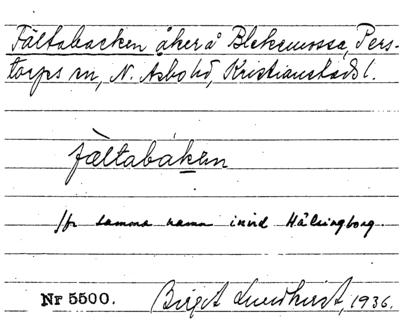 Fältabacken åker å Blekemossa, Pers-
torps sn, N. Åsbo hd, Kristianstads l.
fàltabáken
jfr samma namn invid Hälsingborg.
Nr 5500. Birgit Lundkvist, 1936.